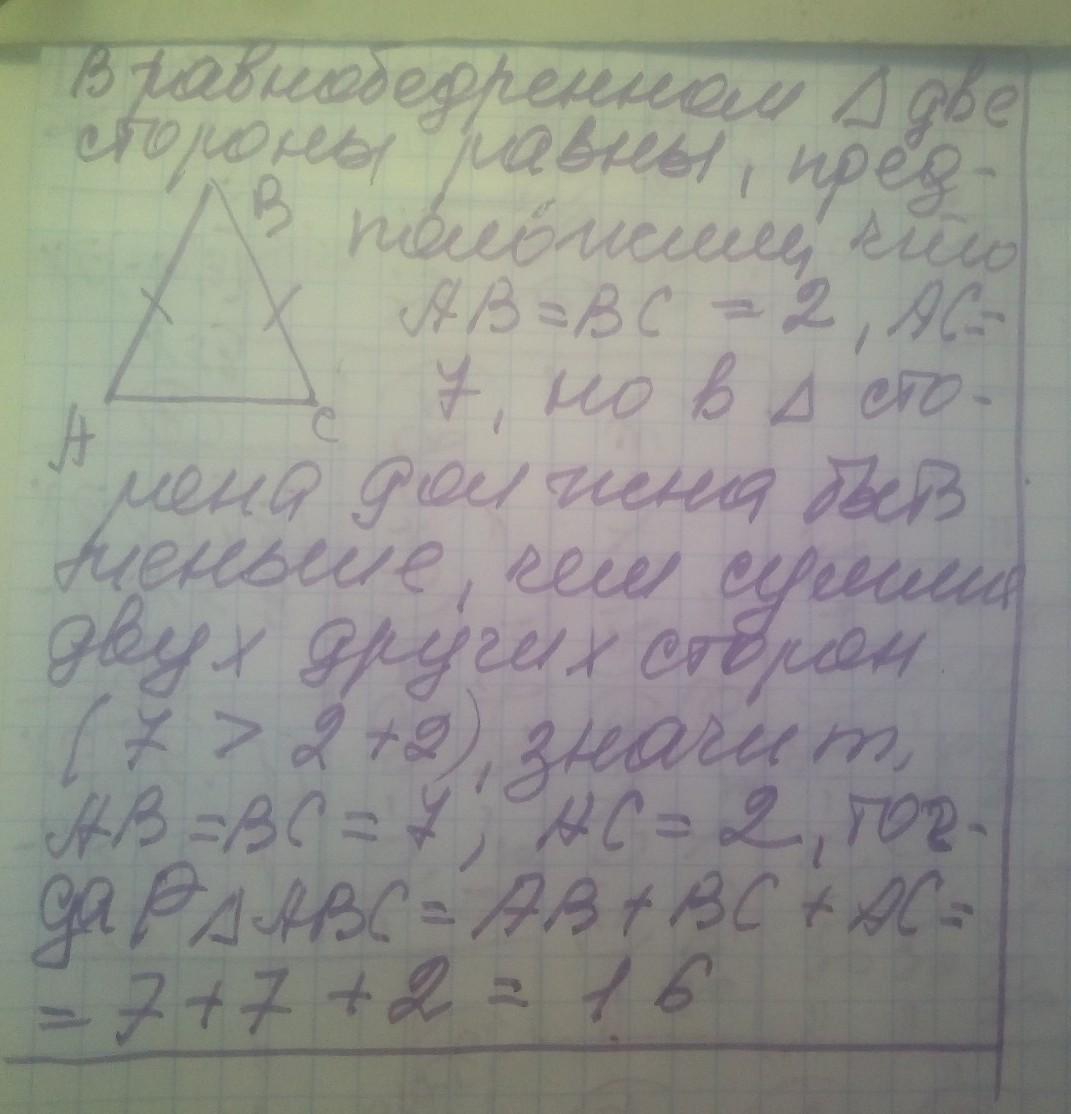 В равнобедренном Δ две
стороны равны, пред-
B
положим, что
AB = BC = 2, AC =
7, но в Δ сто-
A
C
рона должна быть
меньше, чем сумма
двух других сторон
(7 > 2 + 2), значит,
AB = BC = 7, AC = 2, тог-
да P Δ ABC = AB + BC + AC =
= 7 + 7 + 2 = 16